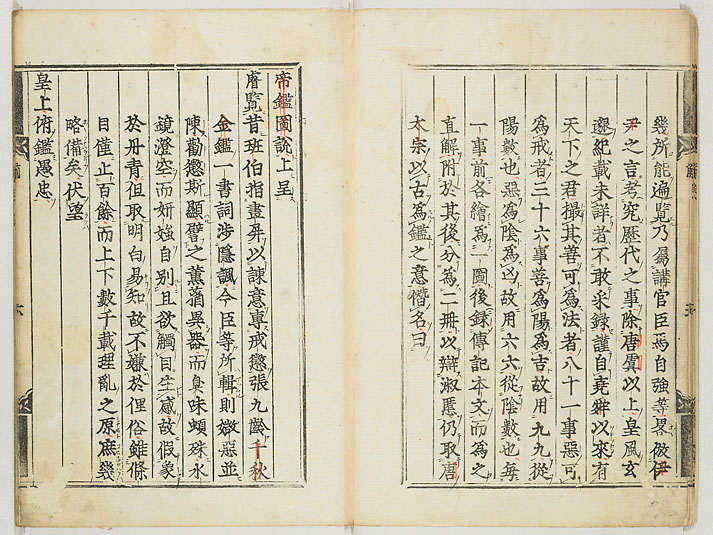 幾所能遍覽乃屬講官臣馬自強等畧倣伊
尹之言考究歷代之事除唐虞以上皇風玄
邈紀載未詳者不敢采録謹自堯舜以來有
天下之君撮其善可爲法者八十一事惡可
爲戒者三十六事善爲陽爲吉故用九九從
陽數也惡爲陰爲凶故用六六從陰數也每
一事前各繪爲一圖後録傳記本文而爲之
直解附於其後分爲二冊以辯淑慝仍取唐
太宗以古爲鑑之意僭名曰
帝鑑圖說上呈
睿覽昔班伯指畫屏以諫意專戒懲張九齡千秋
金鑑一書詞涉隱諷今臣等所輯則媺惡並
陳勸懲斯顯譬之薰蕕異器而臭味頓殊水
鏡澄空而妍媸自別且欲觸目生感故假象
於丹青但取明白易知故不嫌於俚俗雖條
目僅止百餘而上下數千載理亂之原庶幾
略備矣伏望
皇上俯鑑愚忠
六